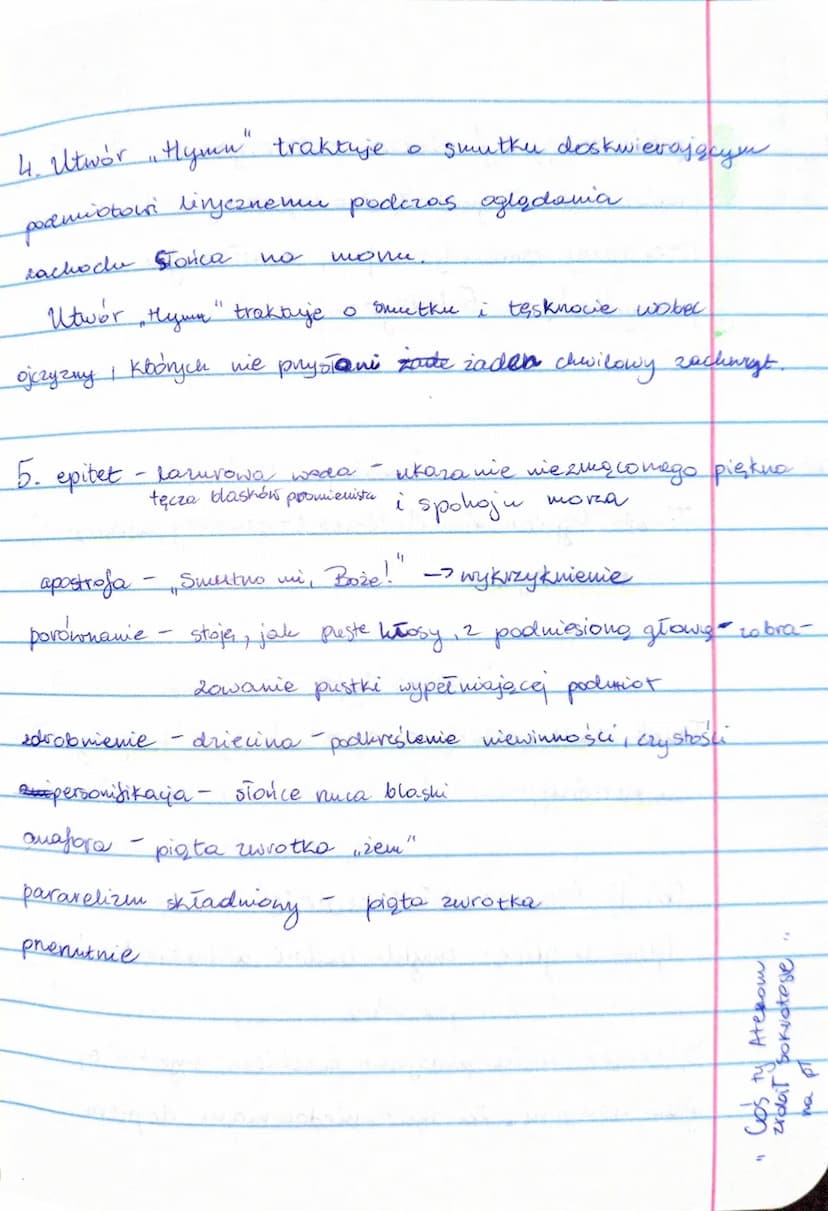 4. Utwór „Hymn" traktuje o smutku doskwierającym
podmiotowi lirycznemu podczas oglądania
zachodu Słońca na morzu.
Utwór „Hymn" traktuje o smutku i tęsknocie wobec
ojczyzny, których nie przysłoni żaden chwilowy zachwyt.
5. epitet - lazurowa woda - ukazanie niezmąconego piękna
tęcza blasków promienista i spokoju morza
apostrofa - „Smutno mi, Boże!" → wykrzyknienie
porównanie - stoję, jak puste kłosy, z podniesioną głową - zobra-
zowanie pustki wypełniającej podmiot
zdrobnienie - dziecina - podkreślenie niewinności, czystości
personifikacja - słońce rzuca blaski
anafora - piąta zwrotka „żem"
pararelizm składniowy - piąta zwrotka
przerzutnie
" Coś ty Atenom
zrobił Sokratesie "
na pl